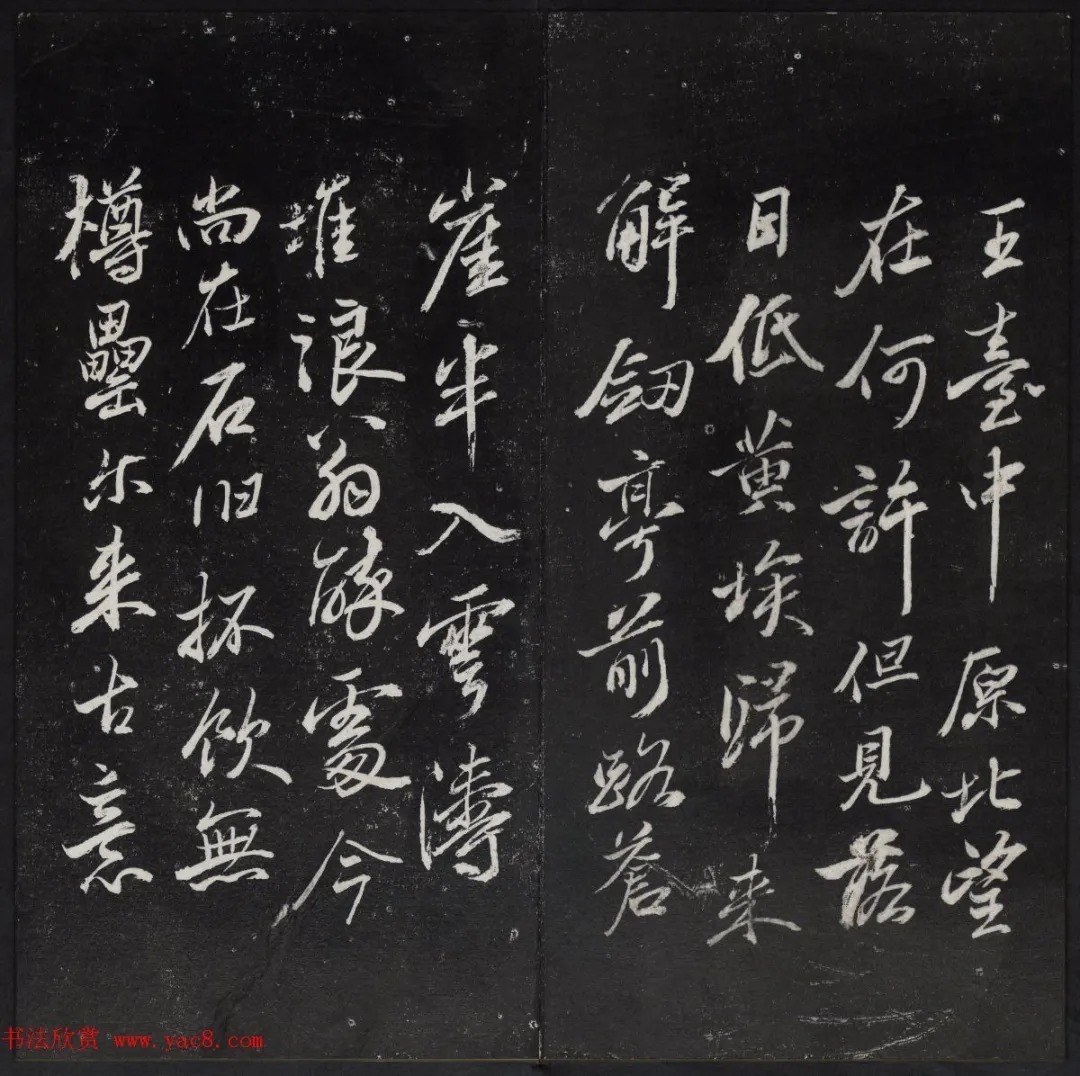 王臺中原北望
在何許但見落
日低黄埃歸来
解釼亭前路蒼
崖半入雲濤
堆浪翁醉處今
尚在石臼抔飲無
樽罍尔来古意
书法欣赏 www.yac8.com